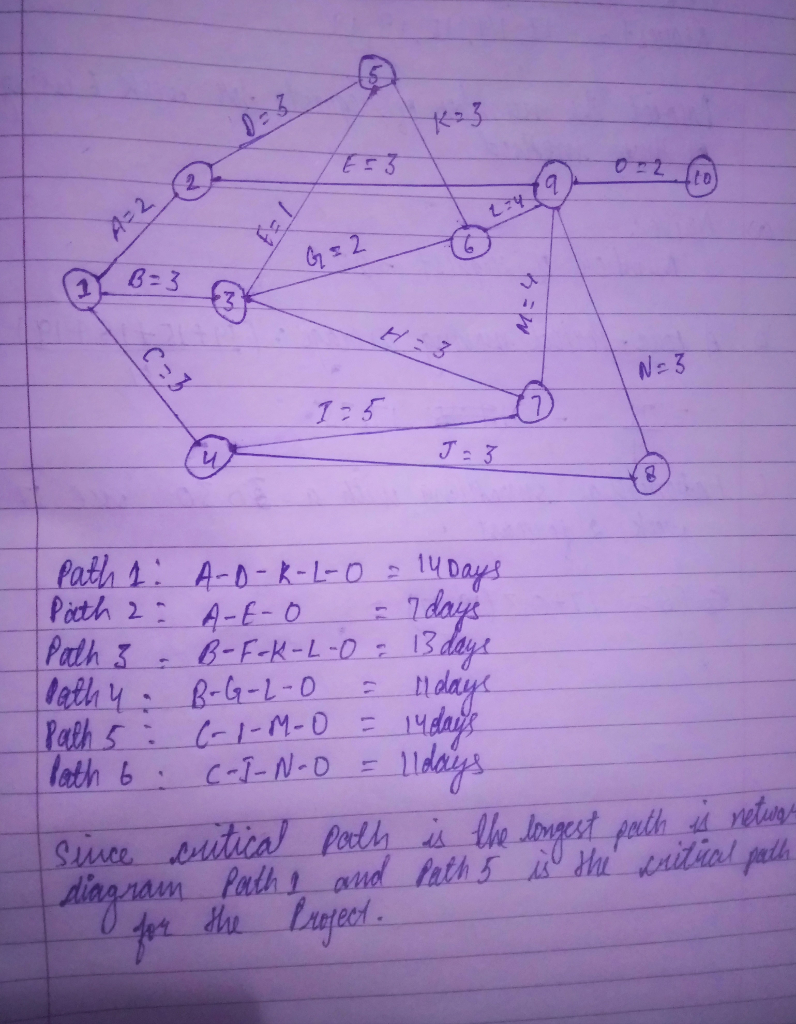 5
D=3
K=3
E=3
2
9
O=2
10
A=2
L=4
E=1
6
G=2
B=3
1
3
M=4
H=3
C=3
N=3
7
I=5
J=3
4
8
Path 1: A-D-K-L-O = 14Days
Path 2: A-E-O = 7days
Path 3 - B-F-K-L-O = 13days
Path 4: B-G-L-O = 11days
Path 5: C-I-M-O = 14days
Path 6: C-J-N-O = 11days
Since critical path is the longest path is networ
diagram Path 1 and Path 5 is the critical path
for the Project.